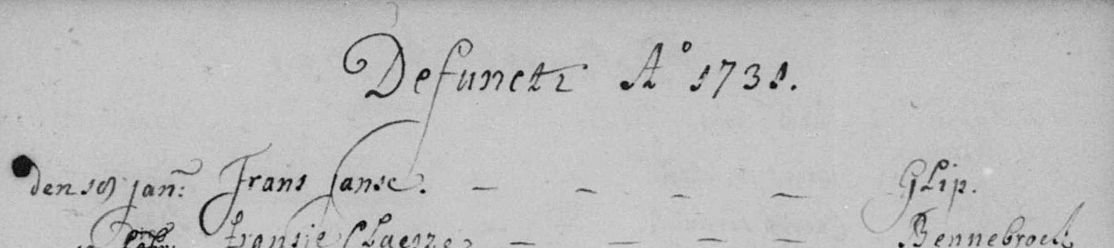 Defuncti A° 1731.
den 19 jan: Frans Janse. — — — — GLip.
Fransje Claesze — — — — Bennebroek